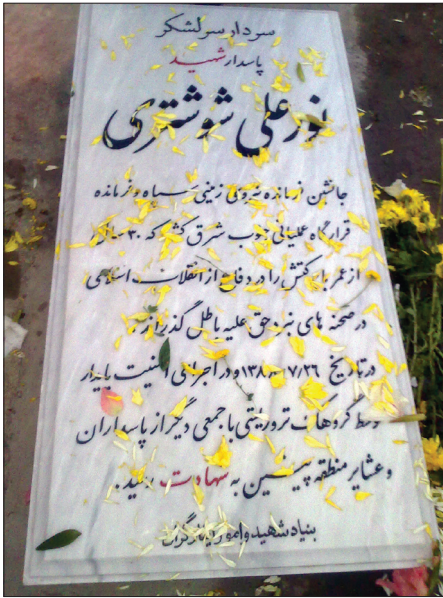 سردار سرلشکر
پاسدار شهید
نورعلی شوشتری
جانشین فرمانده نیروی زمینی سپاه و فرمانده
قرارگاه عملیاتی جنوب شرق کشور که ۳۰ سال
از عمر با برکتش را در دفاع از انقلاب اسلامی
در صحنه های نبرد حق علیه باطل گذراند
در تاریخ ۷/۲۶ و در اجرای امنیت پایدار
توسط گروهک تروریستی با جمعی دیگر از پاسداران
و عشایر منطقه پیشین به شهادت رسید.
بنیاد شهید و امور ایثارگران